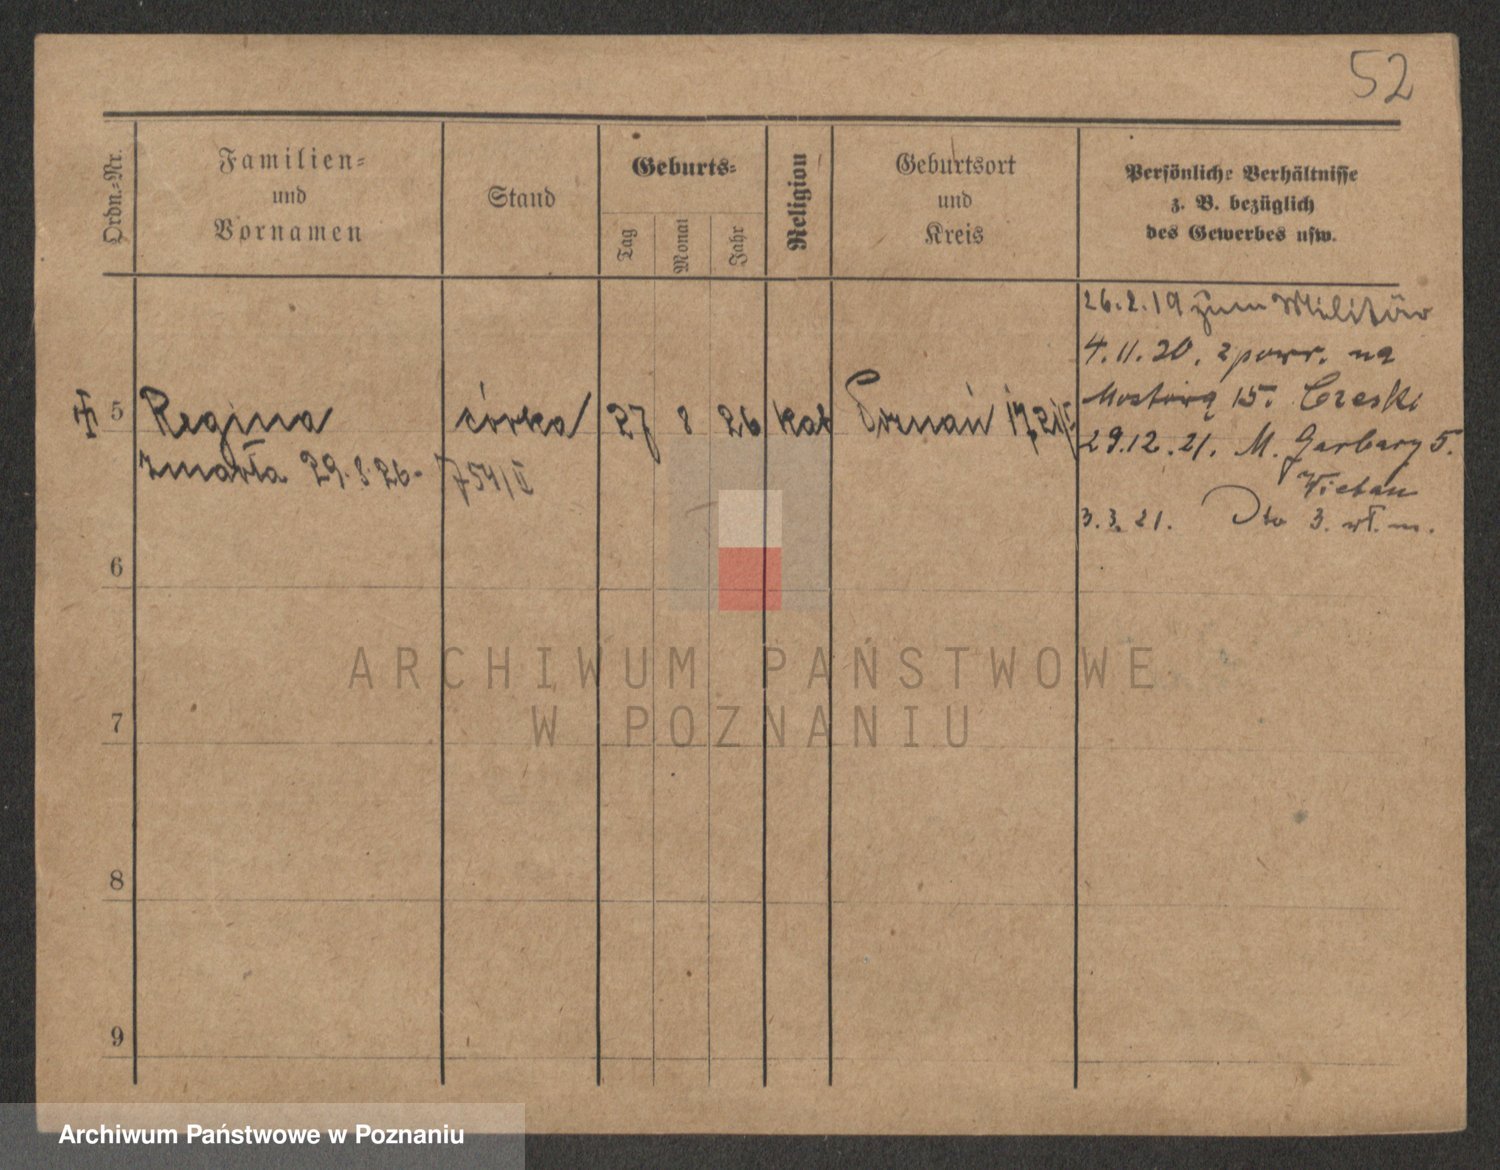 52
Ordn.=Nr.
Familien=
und
Vornamen
Stand
Geburts=
Tag
Monat
Jahr
Religion
Geburtsort
und
Kreis
Persönliche Verhältnisse
z. B. bezüglich
des Gewerbes usw.
26.2.19 zum Militär
4.11.20. z powr. na
15. Czeski
5 Regina córka 27 8 26 kat Poznań
29.12.21. M. Garbary 5.
zmarła 29.8.26. 754/II
3.3.21. Dto 3. wł. m.
6
7
8
9
ARCHIWUM PAŃSTWOWE
W POZNANIU
Archiwum Państwowe w Poznaniu